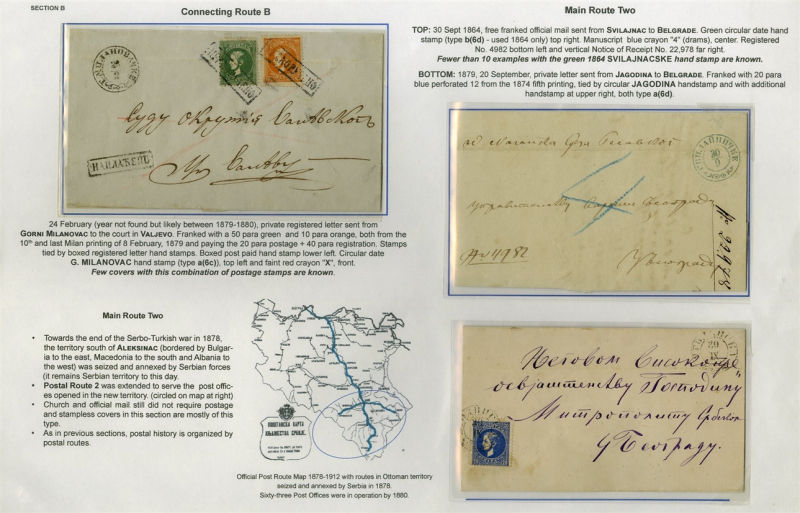 SECTION B
Connecting Route B
НАПЛАЋЕНО
24 February (year not found but likely between 1879-1880), private registered letter sent from
GORNI MILANOVAC to the court in VALJEVO. Franked with a 50 para green and 10 para orange, both from the
10th and last Milan printing of 8 February, 1879 and paying the 20 para postage + 40 para registration. Stamps
tied by boxed registered letter hand stamps. Boxed post paid hand stamp lower left. Circular date
G. MILANOVAC hand stamp (type a(6c)), top left and faint red crayon "X", front.
Few covers with this combination of postage stamps are known.
Main Route Two
• Towards the end of the Serbo-Turkish war in 1878,
the territory south of ALEKSINAC (bordered by Bulgar-
ia to the east, Macedonia to the south and Albania to
the west) was seized and annexed by Serbian forces
(it remains Serbian territory to this day.
• Postal Route 2 was extended to serve the post offic-
es opened in the new territory. (circled on map at right)
• Church and official mail still did not require postage
and stampless covers in this section are mostly of this
type.
• As in previous sections, postal history is organized by
postal routes.
ПОШТАНСКА КАРТА
КЊАЖЕСТВА СРБИЈЕ.
Official Post Route Map 1878-1912 with routes in Ottoman territory
seized and annexed by Serbia in 1878.
Sixty-three Post Offices were in operation by 1880.
Main Route Two
TOP: 30 Sept 1864, free franked official mail sent from SVILAJNAC to BELGRADE. Green circular date hand
stamp (type b(6d) - used 1864 only) top right. Manuscript blue crayon "4" (drams), center. Registered
No. 4982 bottom left and vertical Notice of Receipt No. 22,978 far right.
Fewer than 10 examples with the green 1864 SVILAJNACSKE hand stamp are known.
BOTTOM: 1879, 20 September, private letter sent from JAGODINA to BELGRADE. Franked with 20 para
blue perforated 12 from the 1874 fifth printing, tied by circular JAGODINA handstamp and with additional
handstamp at upper right, both type a(6d).
30
9
4
4982
20
Његовом Високопре
освјаштенству Господину
Митрополиту Србском
у Београду.